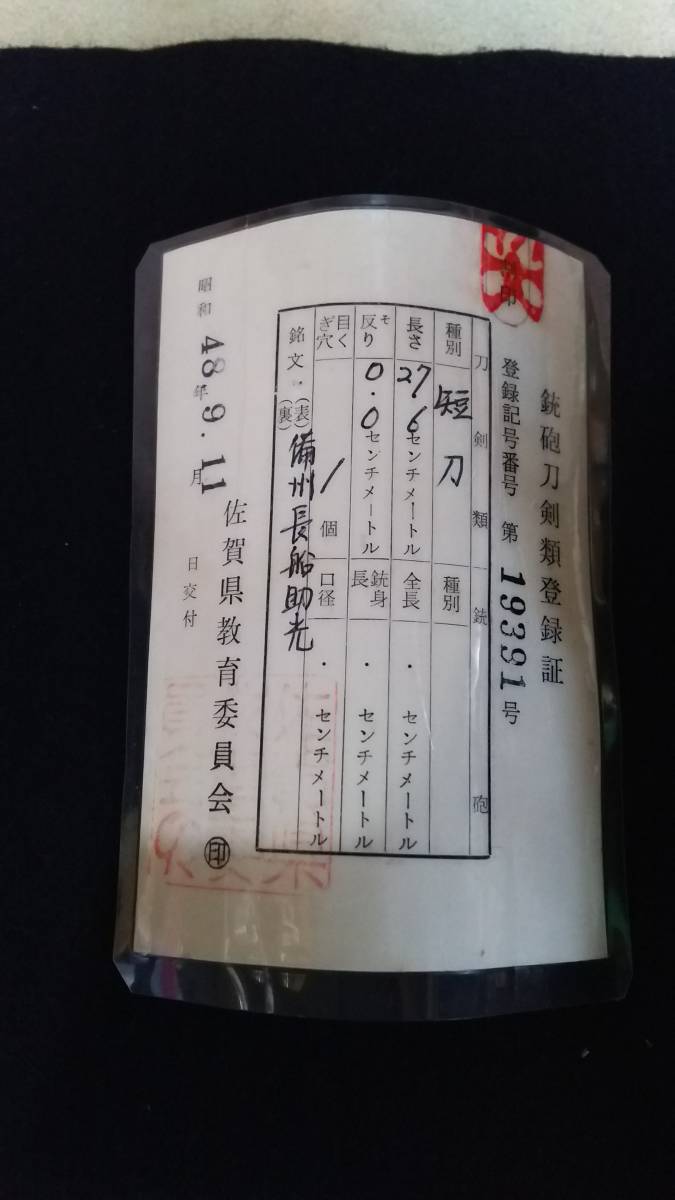 銃砲刀剣類登録証
割印
登録記号番号 第 19391 号
刀剣類 銃砲
種別 短刀 種別
長さ 27.6センチメートル 全長 ・ センチメートル
反り そ 0.0センチメートル 銃身長 ・ センチメートル
目くぎ穴 1 個 口径 ・ センチメートル
銘文・(表)(裏) 備州長船助光
昭和 48年 9.月 11日交付
佐賀県教育委員会 印